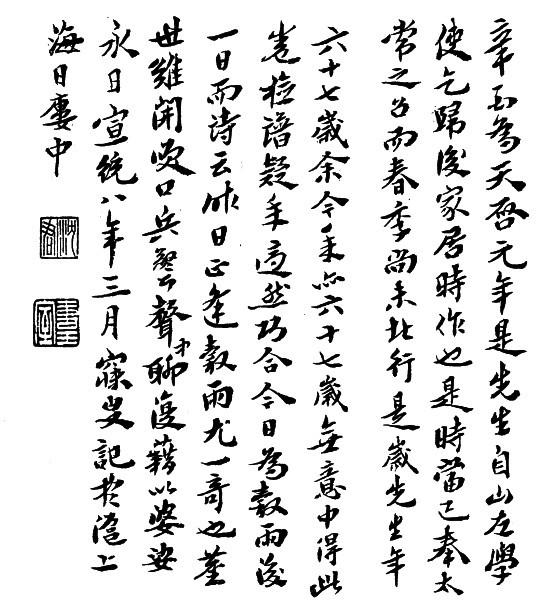 辛酉為天啓元年是先生自山左學
使乞歸後家居時作也是時當已奉太
常之召而春季尚未北行是歲先生年
六十七歲余今年亦六十七歲無意中得此
卷檢譜疑年適然巧合今日為穀雨後
一日而詩云昨日正逢穀雨尤一奇也塵
世難開笑口兵警聲中聊復藉以婆娑
永日宣統八年三月寐叟記於滬上
海日廔中